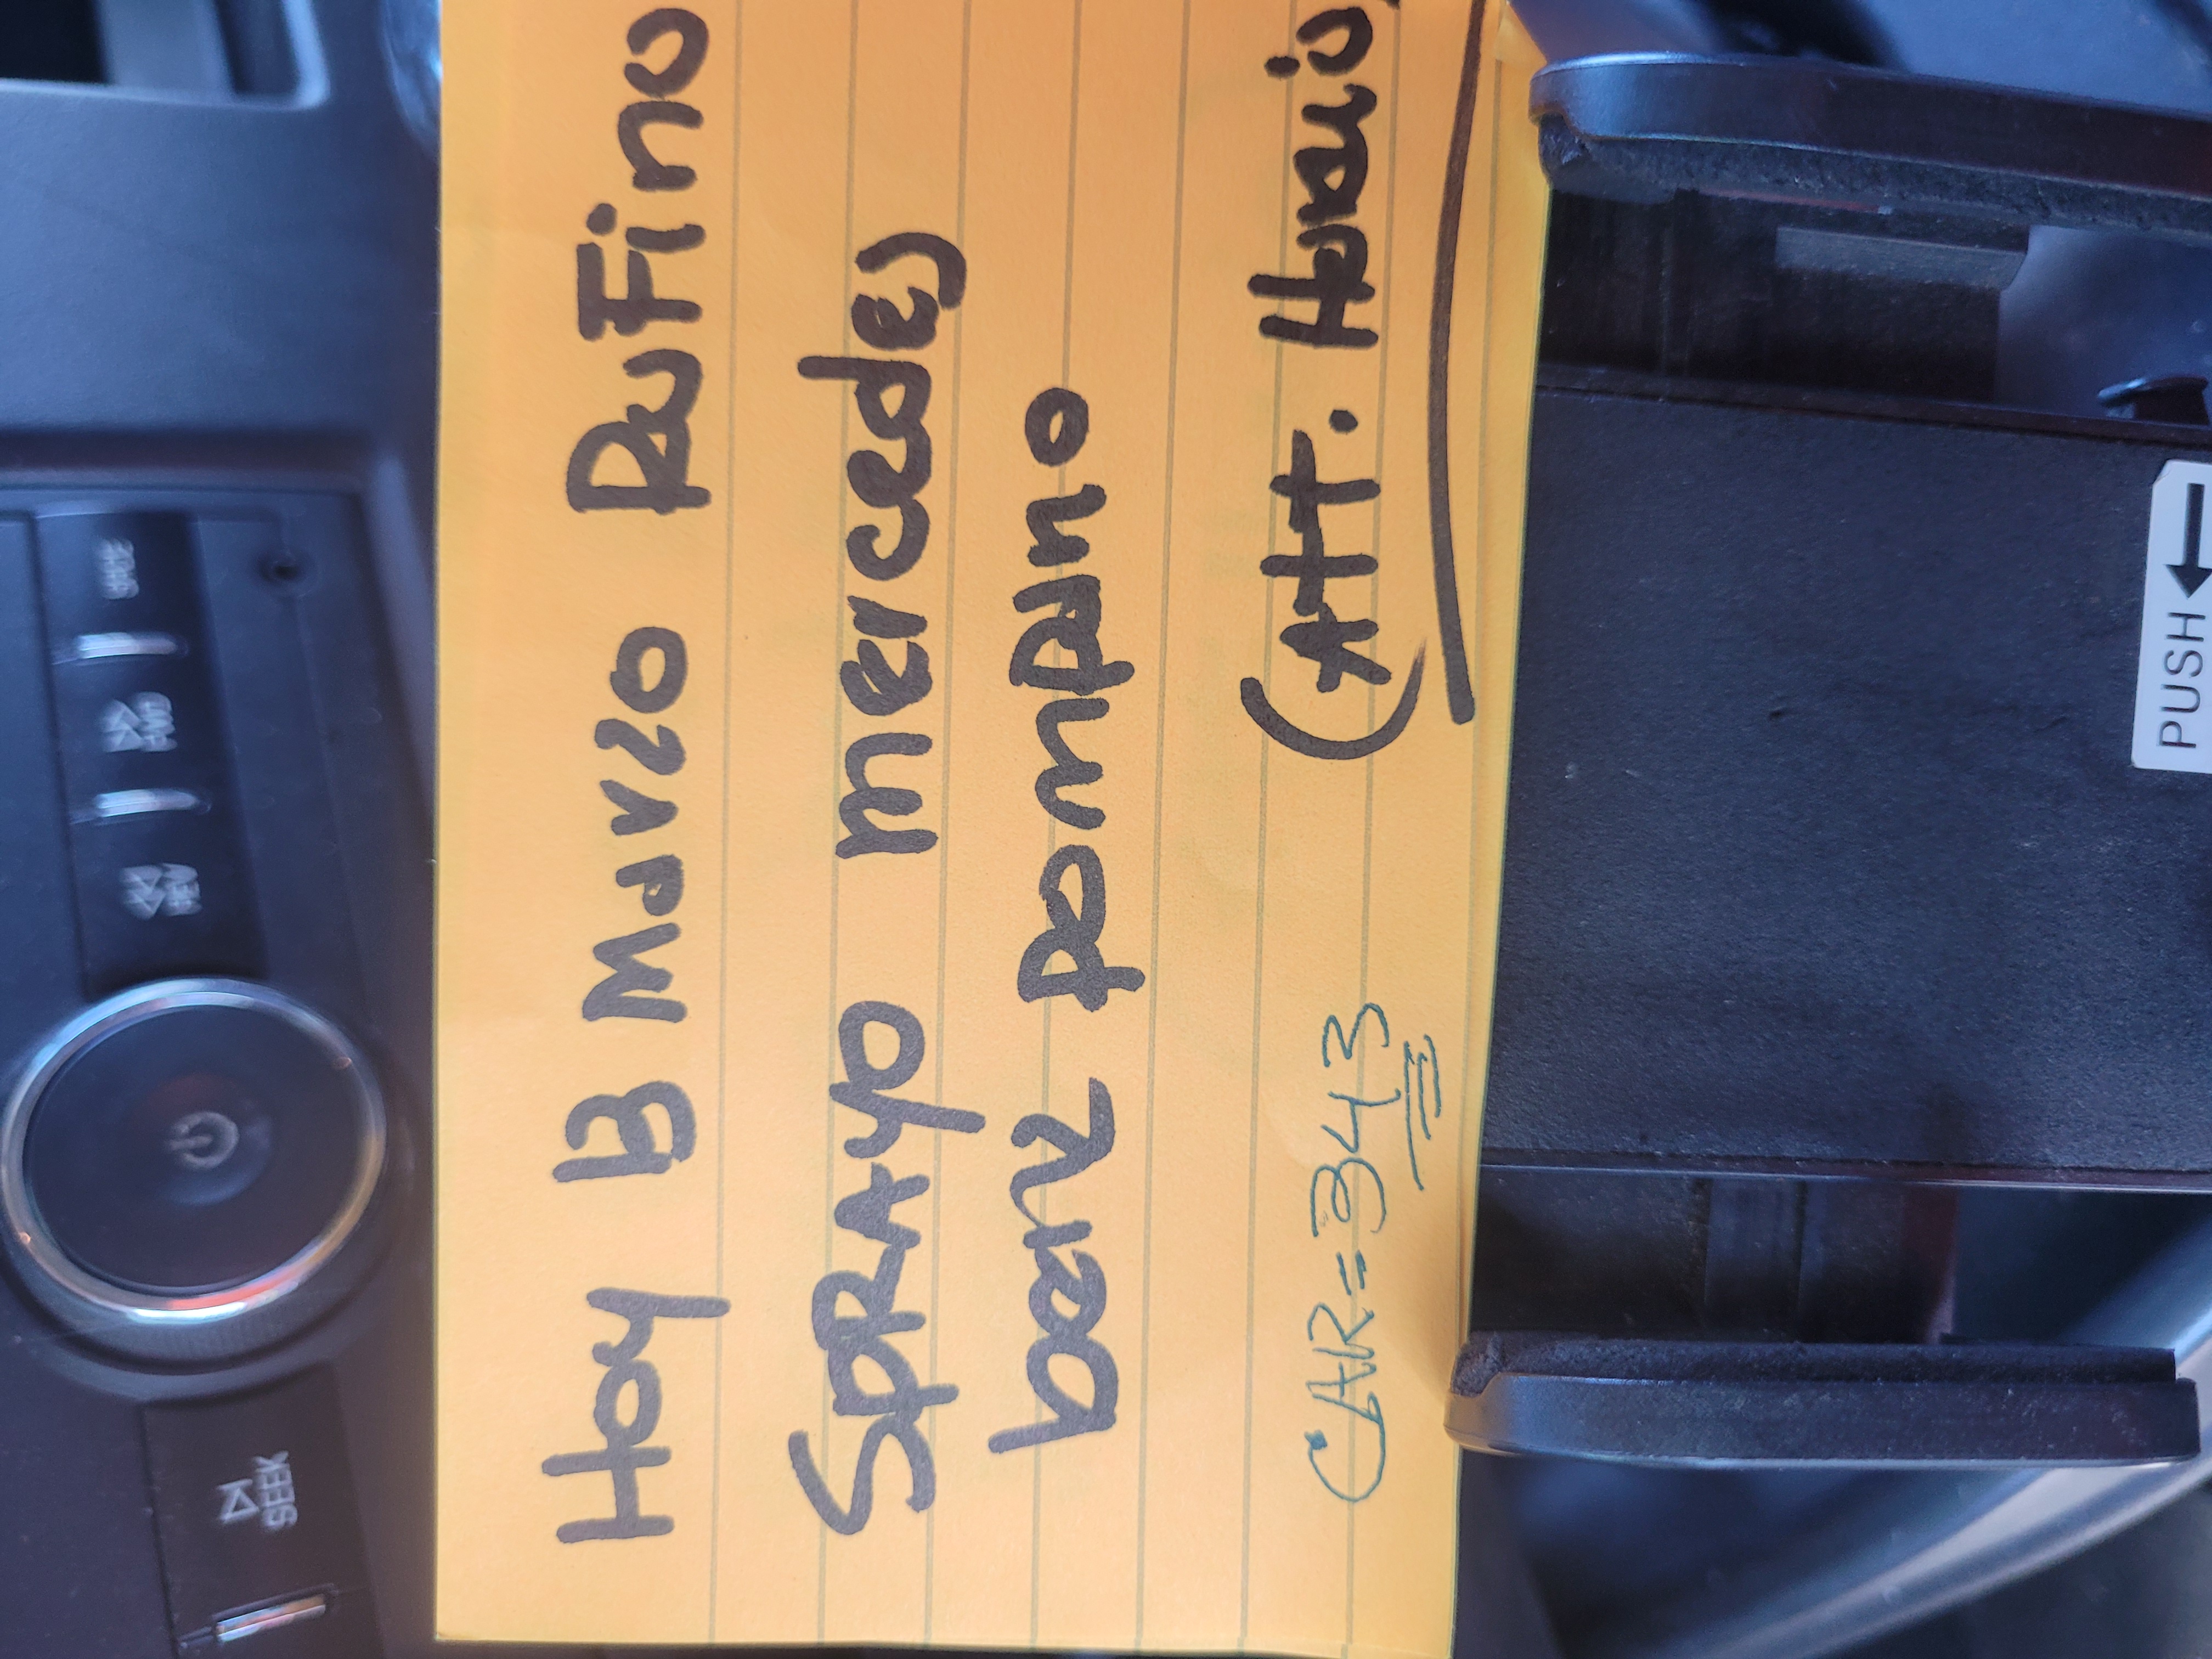 Hoy 13 Marzo Rufino
SPRAYO mercedes
benz pompano
(Att. Horacio)
CAR=343
PUSH
SEEK